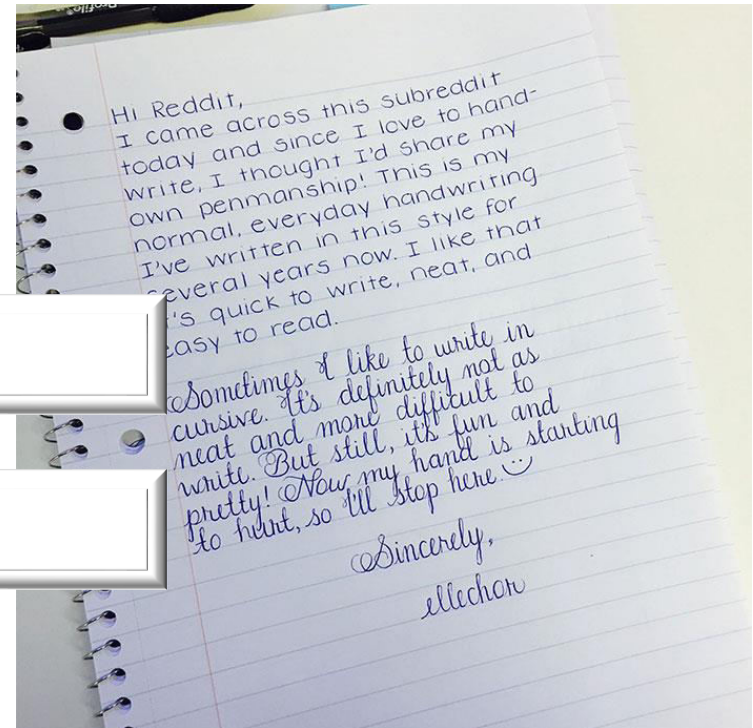 Profile
Hi Reddit,
I came across this subreddit
today and since I love to hand-
write, I thought I'd share my
own penmanship! This is my
normal, everyday handwriting
I've written in this style for
several years now. I like that
it's quick to write, neat, and
easy to read.
Sometimes I like to write in
cursive. It's definitely not as
neat and more difficult to
write. But still, it's fun and
pretty! Now my hand is starting
to hurt, so I'll stop here.
Sincerely,
ellechor